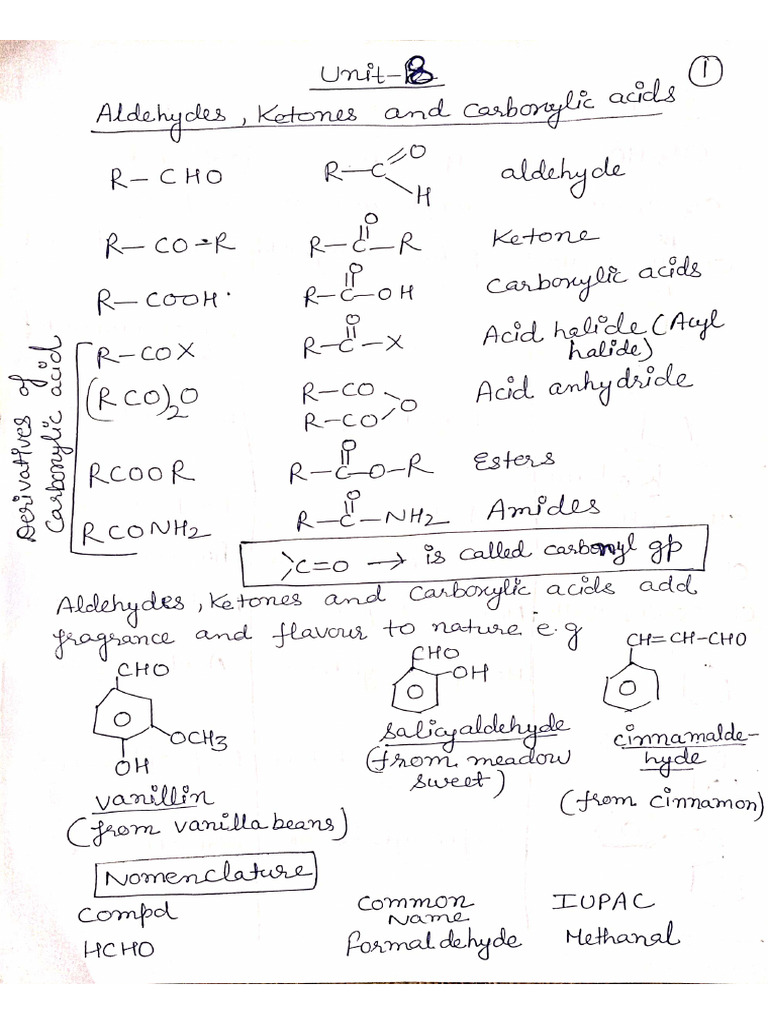 Unit-8
①
Aldehydes, Ketones and Carboxylic acids
R-CHO R-C=O H aldehyde
R-CO-R R-C-R O Ketone
R-COOH. R-C-OH O Carboxylic acids
Derivatives of Carboxylic acid
R-COX R-C-X O Acid halide (Acyl halide)
(RCO)2O R-CO R-CO O Acid anhydride
RCOOR R-C-O-R O Esters
RCONH2 R-C-NH2 O Amides
>C=O → is called carbonyl gp
Aldehydes, Ketones and Carboxylic acids add
fragrance and flavour to nature e.g
CHO OCH3 OH
CHO OH
CH=CH-CHO
vanillin
(from vanilla beans)
salicyaldehyde
(from meadow
sweet)
cinnamalde-
hyde
(from cinnamon)
Nomenclature
Compd Common Name IUPAC
HCHO formaldehyde Methanal